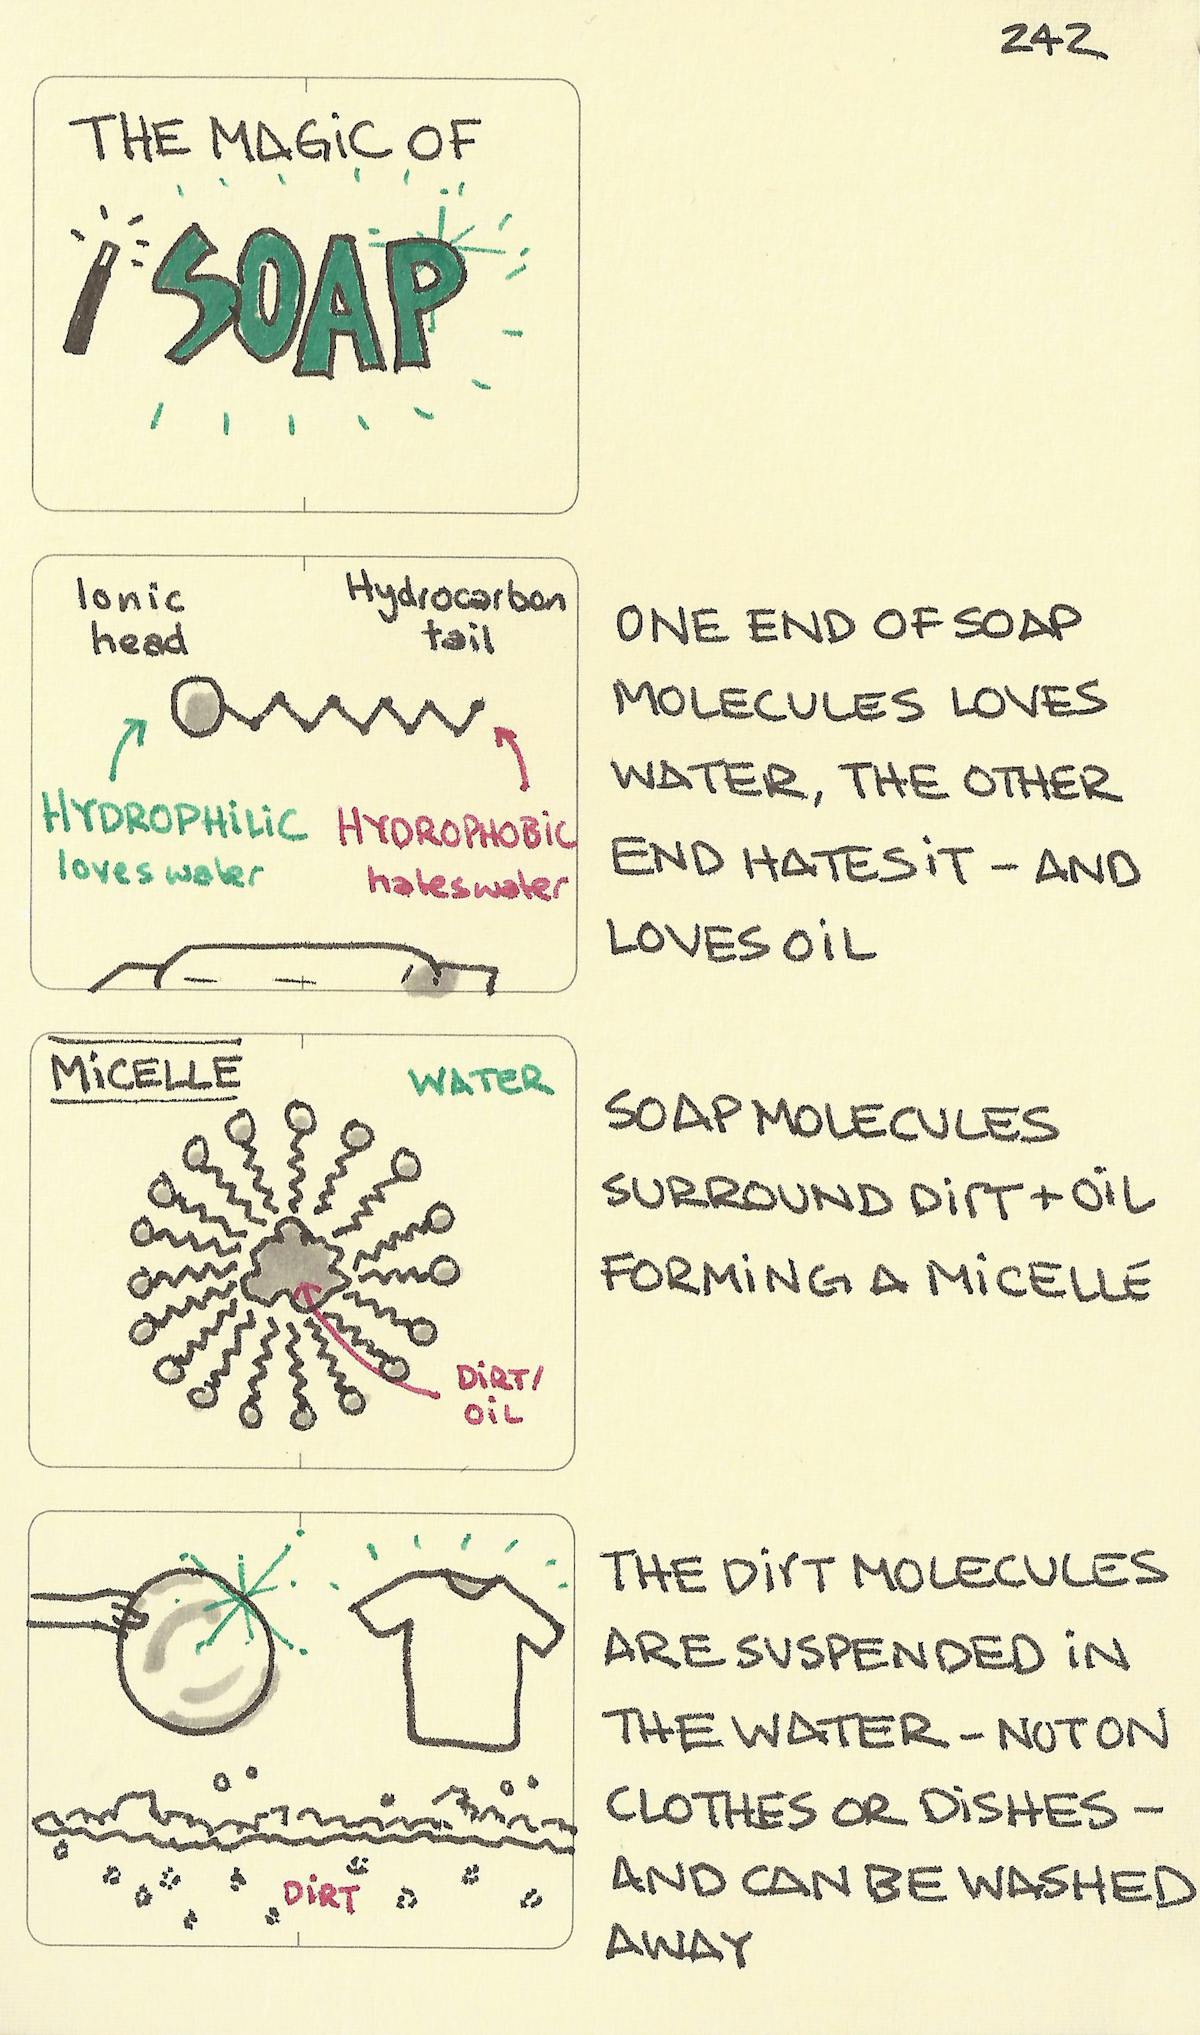 242
THE MAGiC OF
SOAP
Ionic
head
Hydrocarbon
tail
HYDROPHiLiC
loves water
HYDROPHOBiC
hates water
ONE END OF SOAP
MOLECULES LOVES
WATER, THE OTHER
END HATES iT – AND
LOVES OiL
MiCELLE
WATER
DiRT/
OiL
SOAP MOLECULES
SURROUND DiRT + OiL
FORMiNG A MiCELLE
DiRT
THE DiRT MOLECULES
ARE SUSPENDED iN
THE WATER – NOT ON
CLOTHES OR DiSHES –
AND CAN BE WASHED
AWAY